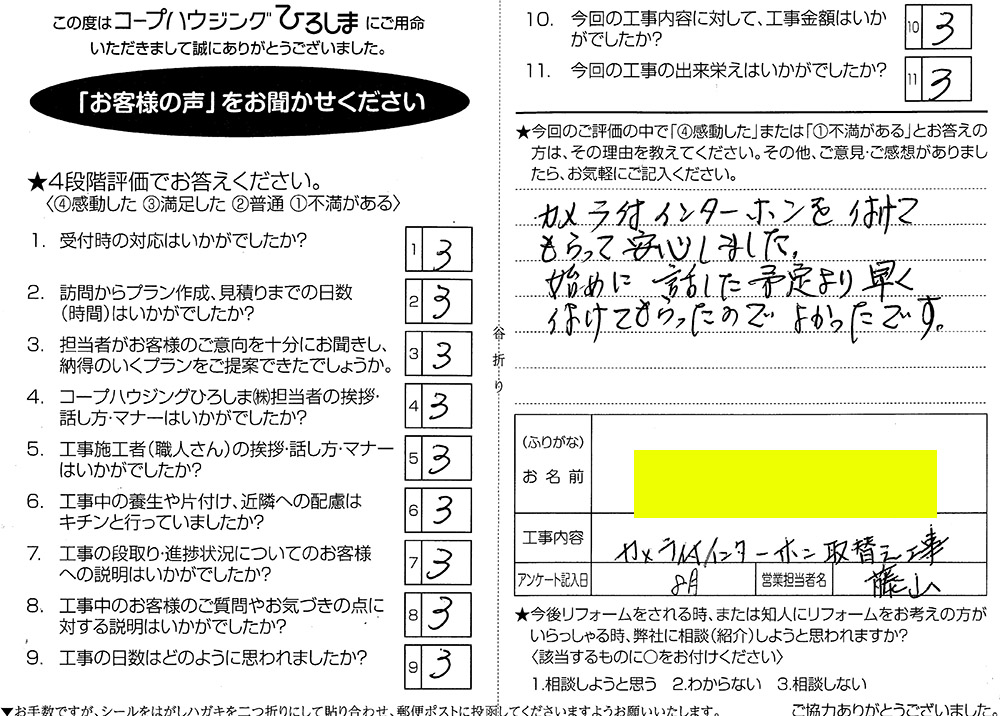 この度はコープハウジングひろしまにご用命
いただきまして誠にありがとうございました。
「お客様の声」をお聞かせください
★4段階評価でお答えください。
〈④感動した ③満足した ②普通 ①不満がある〉
1. 受付時の対応はいかがでしたか?
1 3
2. 訪問からプラン作成、見積りまでの日数
(時間)はいかがでしたか?
2 3
3. 担当者がお客様のご意向を十分にお聞きし、
納得のいくプランをご提案できたでしょうか。
3 3
4. コープハウジングひろしま㈱担当者の挨拶・
話し方・マナーはいかがでしたか?
4 3
5. 工事施工者(職人さん)の挨拶・話し方・マナー
はいかがでしたか?
5 3
6. 工事中の養生や片付け、近隣への配慮は
キチンと行っていましたか?
6 3
7. 工事の段取り・進捗状況についてのお客様
への説明はいかがでしたか?
7 3
8. 工事中のお客様のご質問やお気づきの点に
対する説明はいかがでしたか?
8 3
9. 工事の日数はどのように思われましたか?
9 3
谷折り
10. 今回の工事内容に対して、工事金額はいか
がでしたか?
10 3
11. 今回の工事の出来栄えはいかがでしたか?
11 3
★今回のご評価の中で「④感動した」または「①不満がある」とお答えの
方は、その理由を教えてください。その他、ご意見・ご感想がありまし
たら、お気軽にご記入ください。
カメラ付インターホンを付けて
もらって安心しました。
始めに話した予定より早く
付けてもらったので よかったです。
(ふりがな)
お名前
工事内容 カメラ付インターホン取替え工事
アンケート記入日 8月 営業担当者名 藤山
★今後リフォームをされる時、または知人にリフォームをお考えの方が
いらっしゃる時、弊社に相談(紹介)しようと思われますか?
〈該当するものに○をお付けください〉
1.相談しようと思う 2.わからない 3.相談しない
▼お手数ですが、シールをはがしハガキを二つ折りにして貼り合わせ、郵便ポストに投函してくださいますようお願いいたします。
ご協力ありがとうございました。